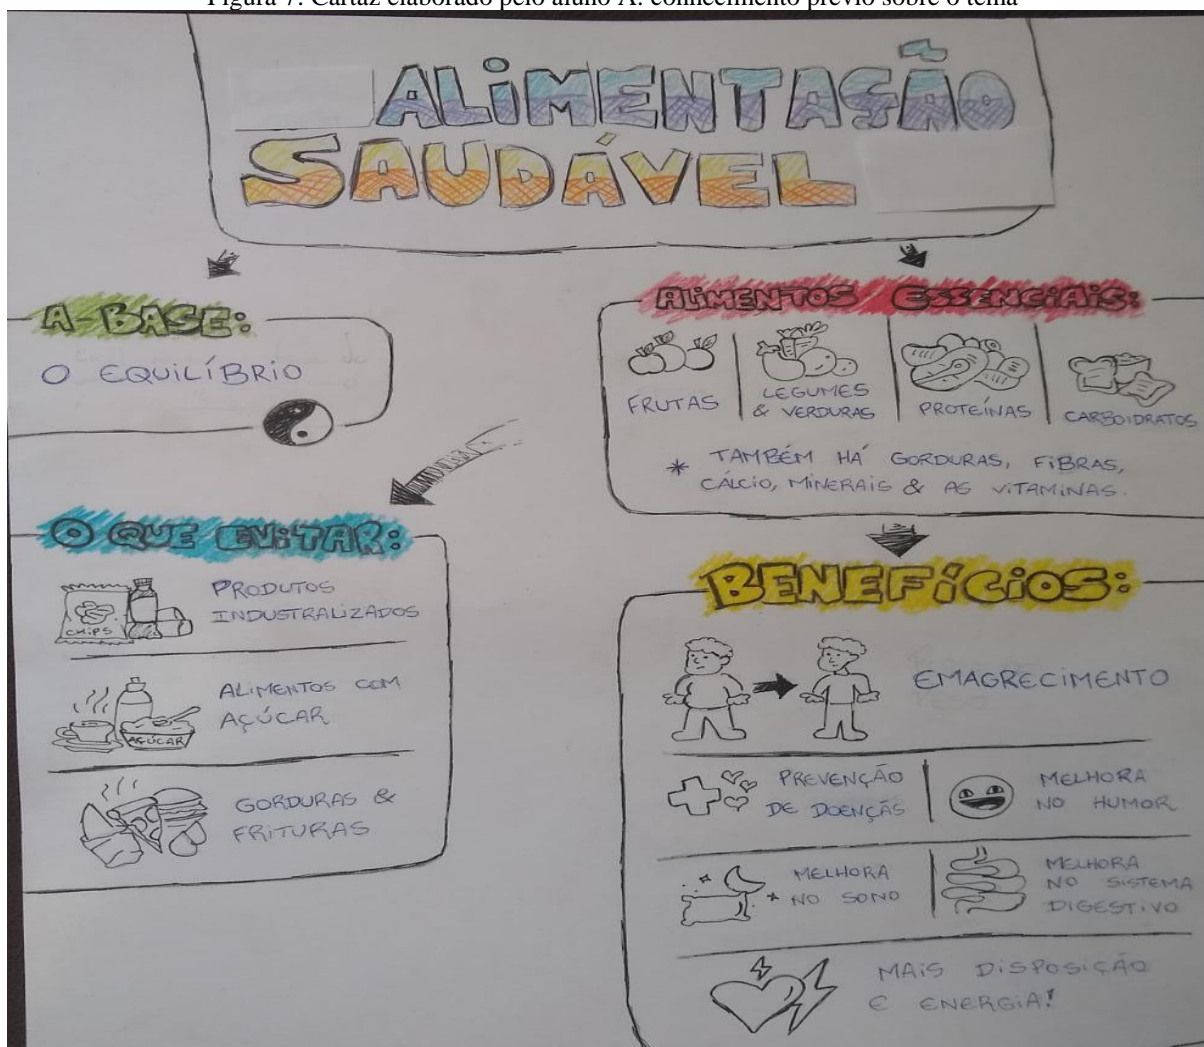 Figura 7: Cartaz elaborado pelo aluno A: conhecimento prévio sobre o tema
ALiMENTAÇÃO
SAUDÁVEL
A BASE:
O EQUILÍBRIO
ALiMENTOS ESSENCiAiS:
FRUTAS
LEGUMES
& VERDURAS
PROTEÍNAS
CARBOIDRATOS
* TAMBÉM HÁ GORDURAS, FiBRAS,
CÁLCIO, MiNERAiS & AS ViTAMiNAS.
O QUE EViTAR:
CHiPS
PRODUTOS
INDUSTRALIZADOS
AÇÚCAR
ALiMENTOS COM
AÇÚCAR
GORDURAS &
FRiTURAS
BENEFíCiOS:
EMAGRECiMENTO
PREVENÇÃO
DE DOENÇÃS
MELHORA
NO HUMOR
MELHORA
NO SONO
MELHORA
NO SISTEMA
DIGESTiVO
MAiS DiSPOSiÇÃO
E ENERGiA!